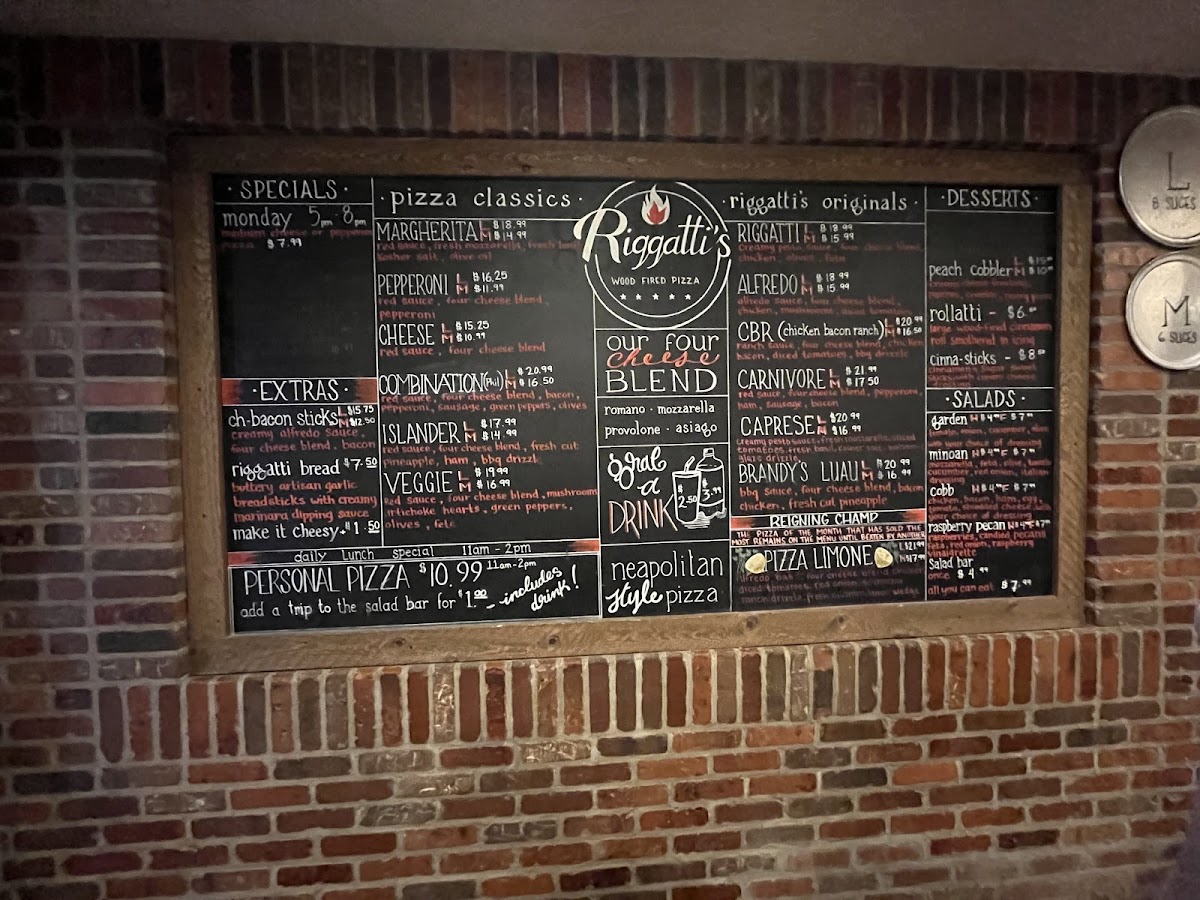 · SPECIALS ·
monday 5pm-8pm
medium cheese or pepperoni
pizza $7.99
· EXTRAS ·
ch-bacon sticks L $15.75
M $12.50
creamy alfredo sauce,
four cheese blend, bacon
riggatti bread $7.50
buttery artisan garlic
breadsticks with creamy
marinara dipping sauce
make it cheesy +$1.50
· pizza classics ·
MARGHERITA L $18.99
M $14.99
red sauce, fresh mozzarella, fresh basil
kosher salt, olive oil
PEPPERONI L $16.25
M $11.99
red sauce, four cheese blend,
pepperoni
CHEESE L $15.25
M $10.99
red sauce, four cheese blend
COMBINATION (Phil) L $20.99
M $16.50
red sauce, four cheese blend, bacon,
pepperoni, sausage, green peppers, olives
ISLANDER L $17.99
M $14.99
red sauce, four cheese blend, fresh cut
pineapple, ham, bbq drizzl
VEGGIE L $19.99
M $16.99
red sauce, four cheese blend, mushroom
artichoke hearts, green peppers,
olives, fete
daily lunch special 11am - 2pm
PERSONAL PIZZA $10.99 11am-2pm
add a trip to the salad bar for $1.00 - includes
drink!
Riggatti's
WOOD FIRED PIZZA
our four
cheese
BLEND
romano · mozzarella
provolone · asiago
grab
a
DRINK
$2.50
$3.99
neapolitan
style pizza
· riggatti's originals ·
RIGGATTI L $18.99
M $15.99
creamy pesto sauce, four cheese blend,
chicken, olives, feta
ALFREDO L $18.99
M $15.99
alfredo sauce, four cheese blend,
chicken, mushrooms, diced tomatoes
CBR (chicken bacon ranch) L $20.99
M $16.50
ranch sauce, four cheese blend, chicken
bacon, diced tomatoes, bbq drizzle
CARNIVORE L $21.99
M $17.50
red sauce, four cheese blend, pepperoni,
ham, sausage, bacon
CAPRESE L $20.99
M $16.99
creamy pesto sauce, fresh mozzarella, sliced
tomatoes, fresh basil
drizzle
BRANDY'S LUAU L $20.99
M $16.99
bbq sauce, four cheese blend, bacon
chicken, fresh cut pineapple
REIGNING CHAMP
THE PIZZA OF THE MONTH THAT HAS SOLD THE
MOST REMAINS ON THE MENU UNTIL BEATEN BY ANOTHER
PIZZA LIMONE L $21.99
M $17.99
alfredo base, four cheese blend
diced tomatoes, red onion
· DESSERTS ·
peach cobbler L
M
rollatti - $6.
large wood-fired cinnamon
roll smothered in icing
cinna-sticks - $8
· SALADS ·
garden H $4 F $7
your choice of dressing
minoan H $4 F $7
mozzarella, feta, olive
cucumber, red onion, italian
dressing
cobb H $4 F $7
chicken, bacon, ham, egg,
tomato, shredded cheese
your choice of dressing
raspberry pecan H $4 F $7
raspberries, candied pecans
feta, red onions, raspberry
vinaigrette
salad bar
once $4.99
all you can eat $7.99
L
8 SLICES
M
6 SLICES